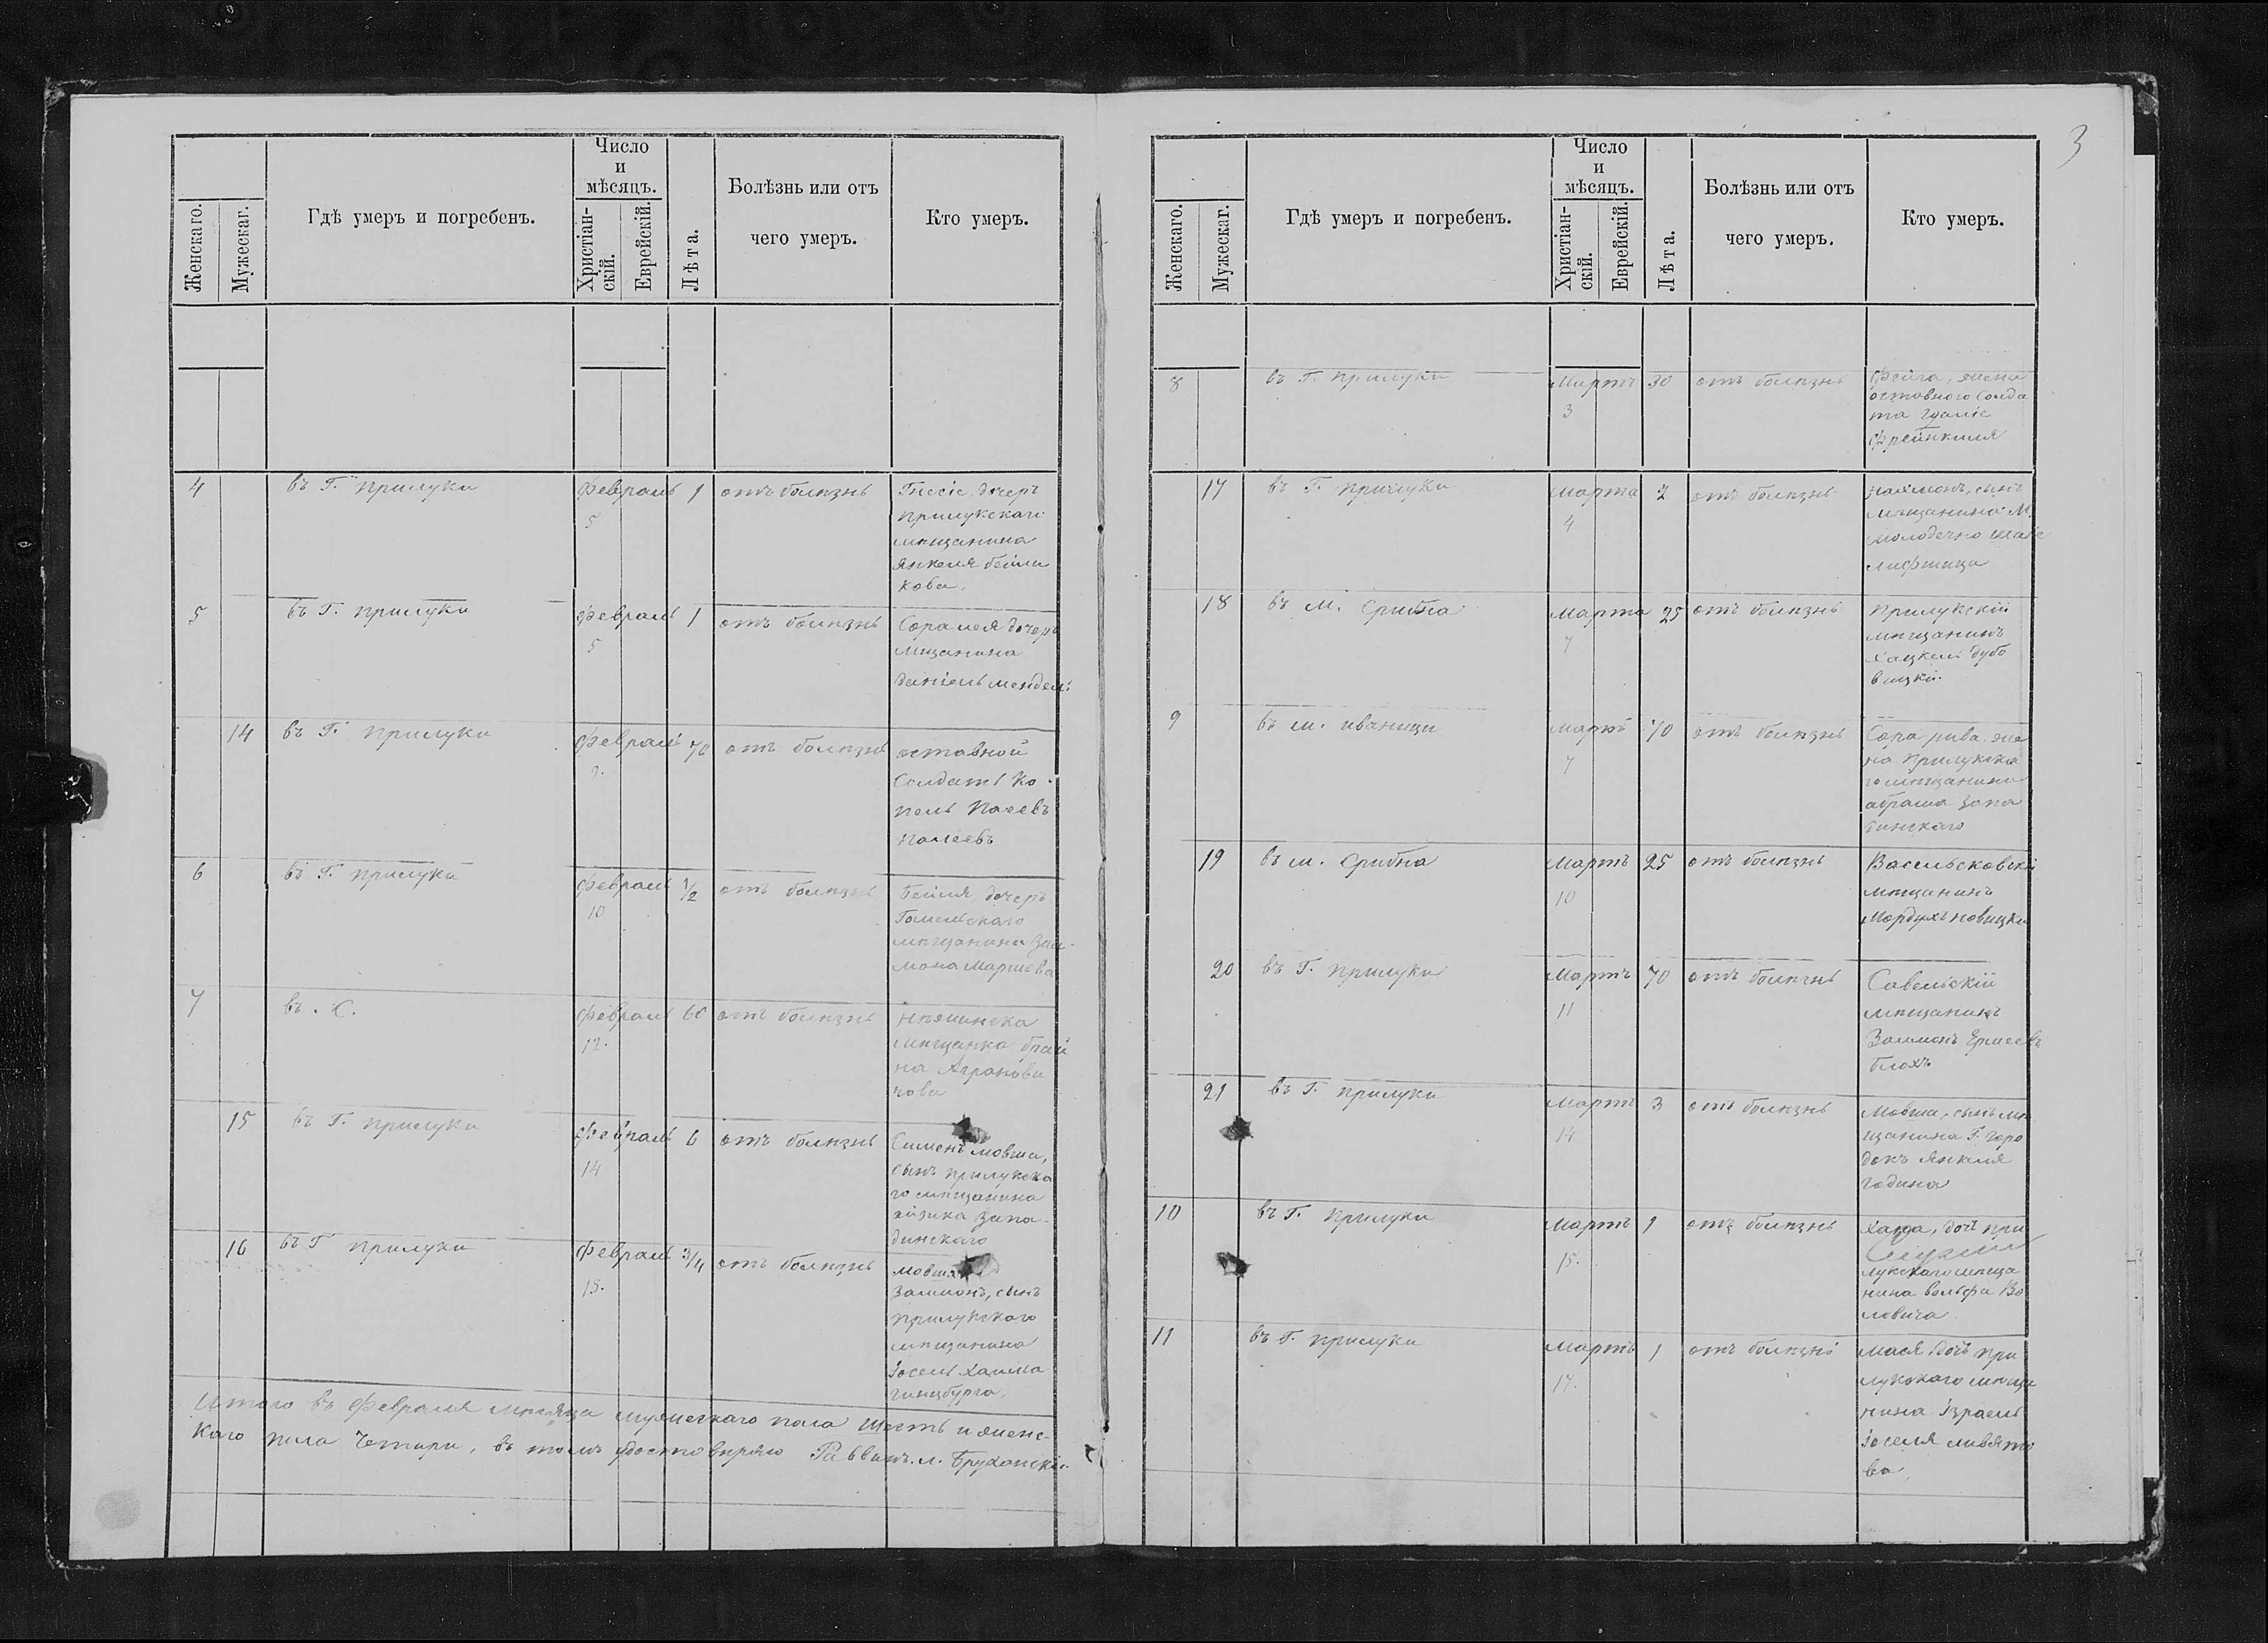 3
Женскаго.
Мужескаг.
Гдѣ умеръ и погребенъ.
Число
и
мѣсяцъ.
Христіан-
скій.
Еврейскій.
Лѣта.
Болѣзнь или отъ
чего умеръ.
Кто умеръ.
4 въ Г. Прилуки Февраль 1 отъ болѣзнь Гнесіе, дочеръ
5 Прилукскаго
мѣщанина
Янкеля
кова.
5 въ Г. Прилуки Февраль 1 отъ болѣзнь Сора лея дочеръ
5 мщанина
Даніель мендел
14 въ Г. Прилуки Февраль 70 отъ болѣзнь оставной
Солдатъ Ко
пель
6 въ Г. Прилуки Февраль 1/2 отъ болѣзнь Бейля, дочеръ
10 Гомельскаго
мѣщанина Зал
мона
7 въ . С. Февраль 60 отъ болѣзнь
12. мѣщанка
на
15 въ Г. Прилуки Февраль 6 отъ болѣзнь Сименъ мовша,
14 сынъ прилукска
го мѣщанина
айзика Запа-
динскаго
16 въ Г Прилуки Февраль 3/4 отъ болѣзнь мовша
Залмонъ, сынъ
прилукскаго
мѣщанина
Іосель Хаима
гинцбурга.
Итого въ Февраля мѣсяца мужескаго пола Шесть и женс-
каго пола Четыри, въ томъ удостовѣряю Раввинъ. л. Бруханскій.
Женскаго.
Мужескаг.
Гдѣ умеръ и погребенъ.
Число
и
мѣсяцъ.
Христіан-
скій.
Еврейскій.
Лѣта.
Болѣзнь или отъ
чего умеръ.
Кто умеръ.
8 въ Г. Прилуки Мартъ 30 отъ болѣзнь Фейга, жена
3 оставного Солда
та
Фрейнкиля
17 въ Г. Прилуки Марта 2 отъ болѣзнь сынъ
4 мѣщанина М.
молодечно
лифшица
18 въ М. Срибна Марта 25 отъ болѣзнь Прилукскій
7 мѣщанинъ
Хацкель дубо
вицкій
9 въ м. иваници Мартъ 70 отъ болѣзнь Сора рива же
7 на Прилукска
го мѣщанина
абрама Запа
динскаго
19 въ м. Срибна Мартъ 25 отъ болѣзнь Васельсковскій
10 мѣщанинъ
Мордухъ новицки
20 въ Г. Прилуки Мартъ 70 отъ болѣзнь Савельскій
11 мѣщанинъ
Залмонъ
блохъ
21 въ Г. Прилуки Мартъ 3 отъ болѣзнь Мовша, сынъ мѣ
14 щанина Г. Горо
докъ Янкеля
Година
10 въ Г. Прилуки Мартъ 1 отъ болѣзнь Хана, доч при
15. лукскаго мѣща
нина вольфа Во
ловича
11 въ Г. Прилуки Мартъ 1 отъ болѣзнь Мася доч при
17. лукскаго мѣща
нина Израель
Іоселя ливято
ва.